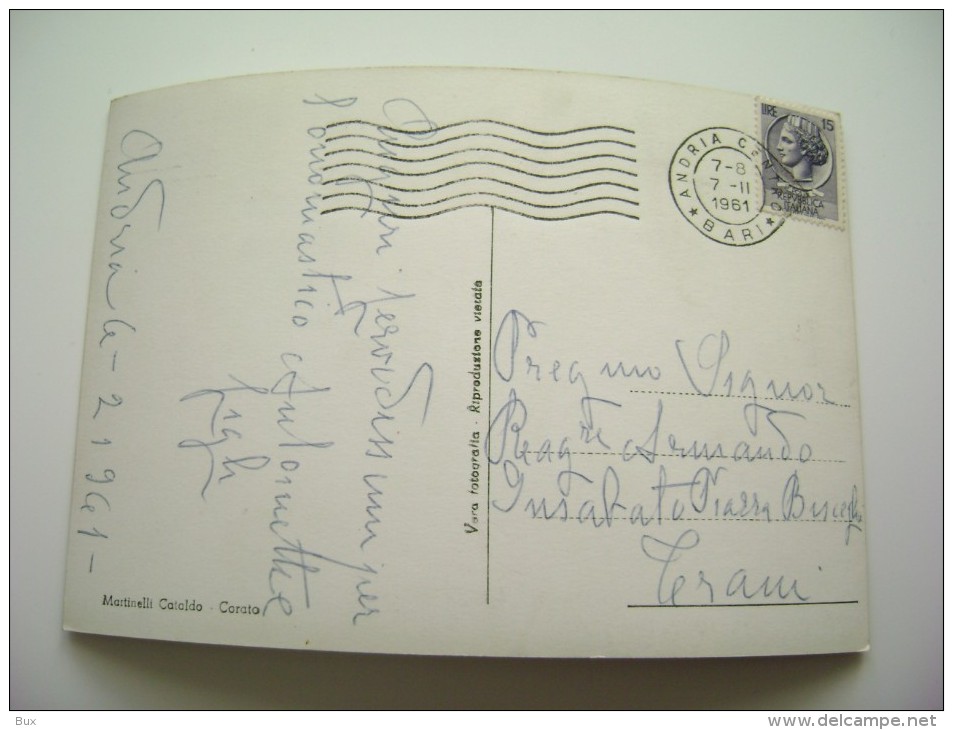 Andria 6-2-1961-
Auguri fervidissimi per
l'onomastico Antonietta
figli
Vera fotografia - Riproduzione vietata
Martinelli Cataldo - Corato
ANDRIA CEN
7-8
7-II
1961
* BARI *
LIRE 15
REPVBBLICA
ITALIANA
Pregmo Signor
Armando
Insabato Piazza
Trani
Bux
www.delcampe.net